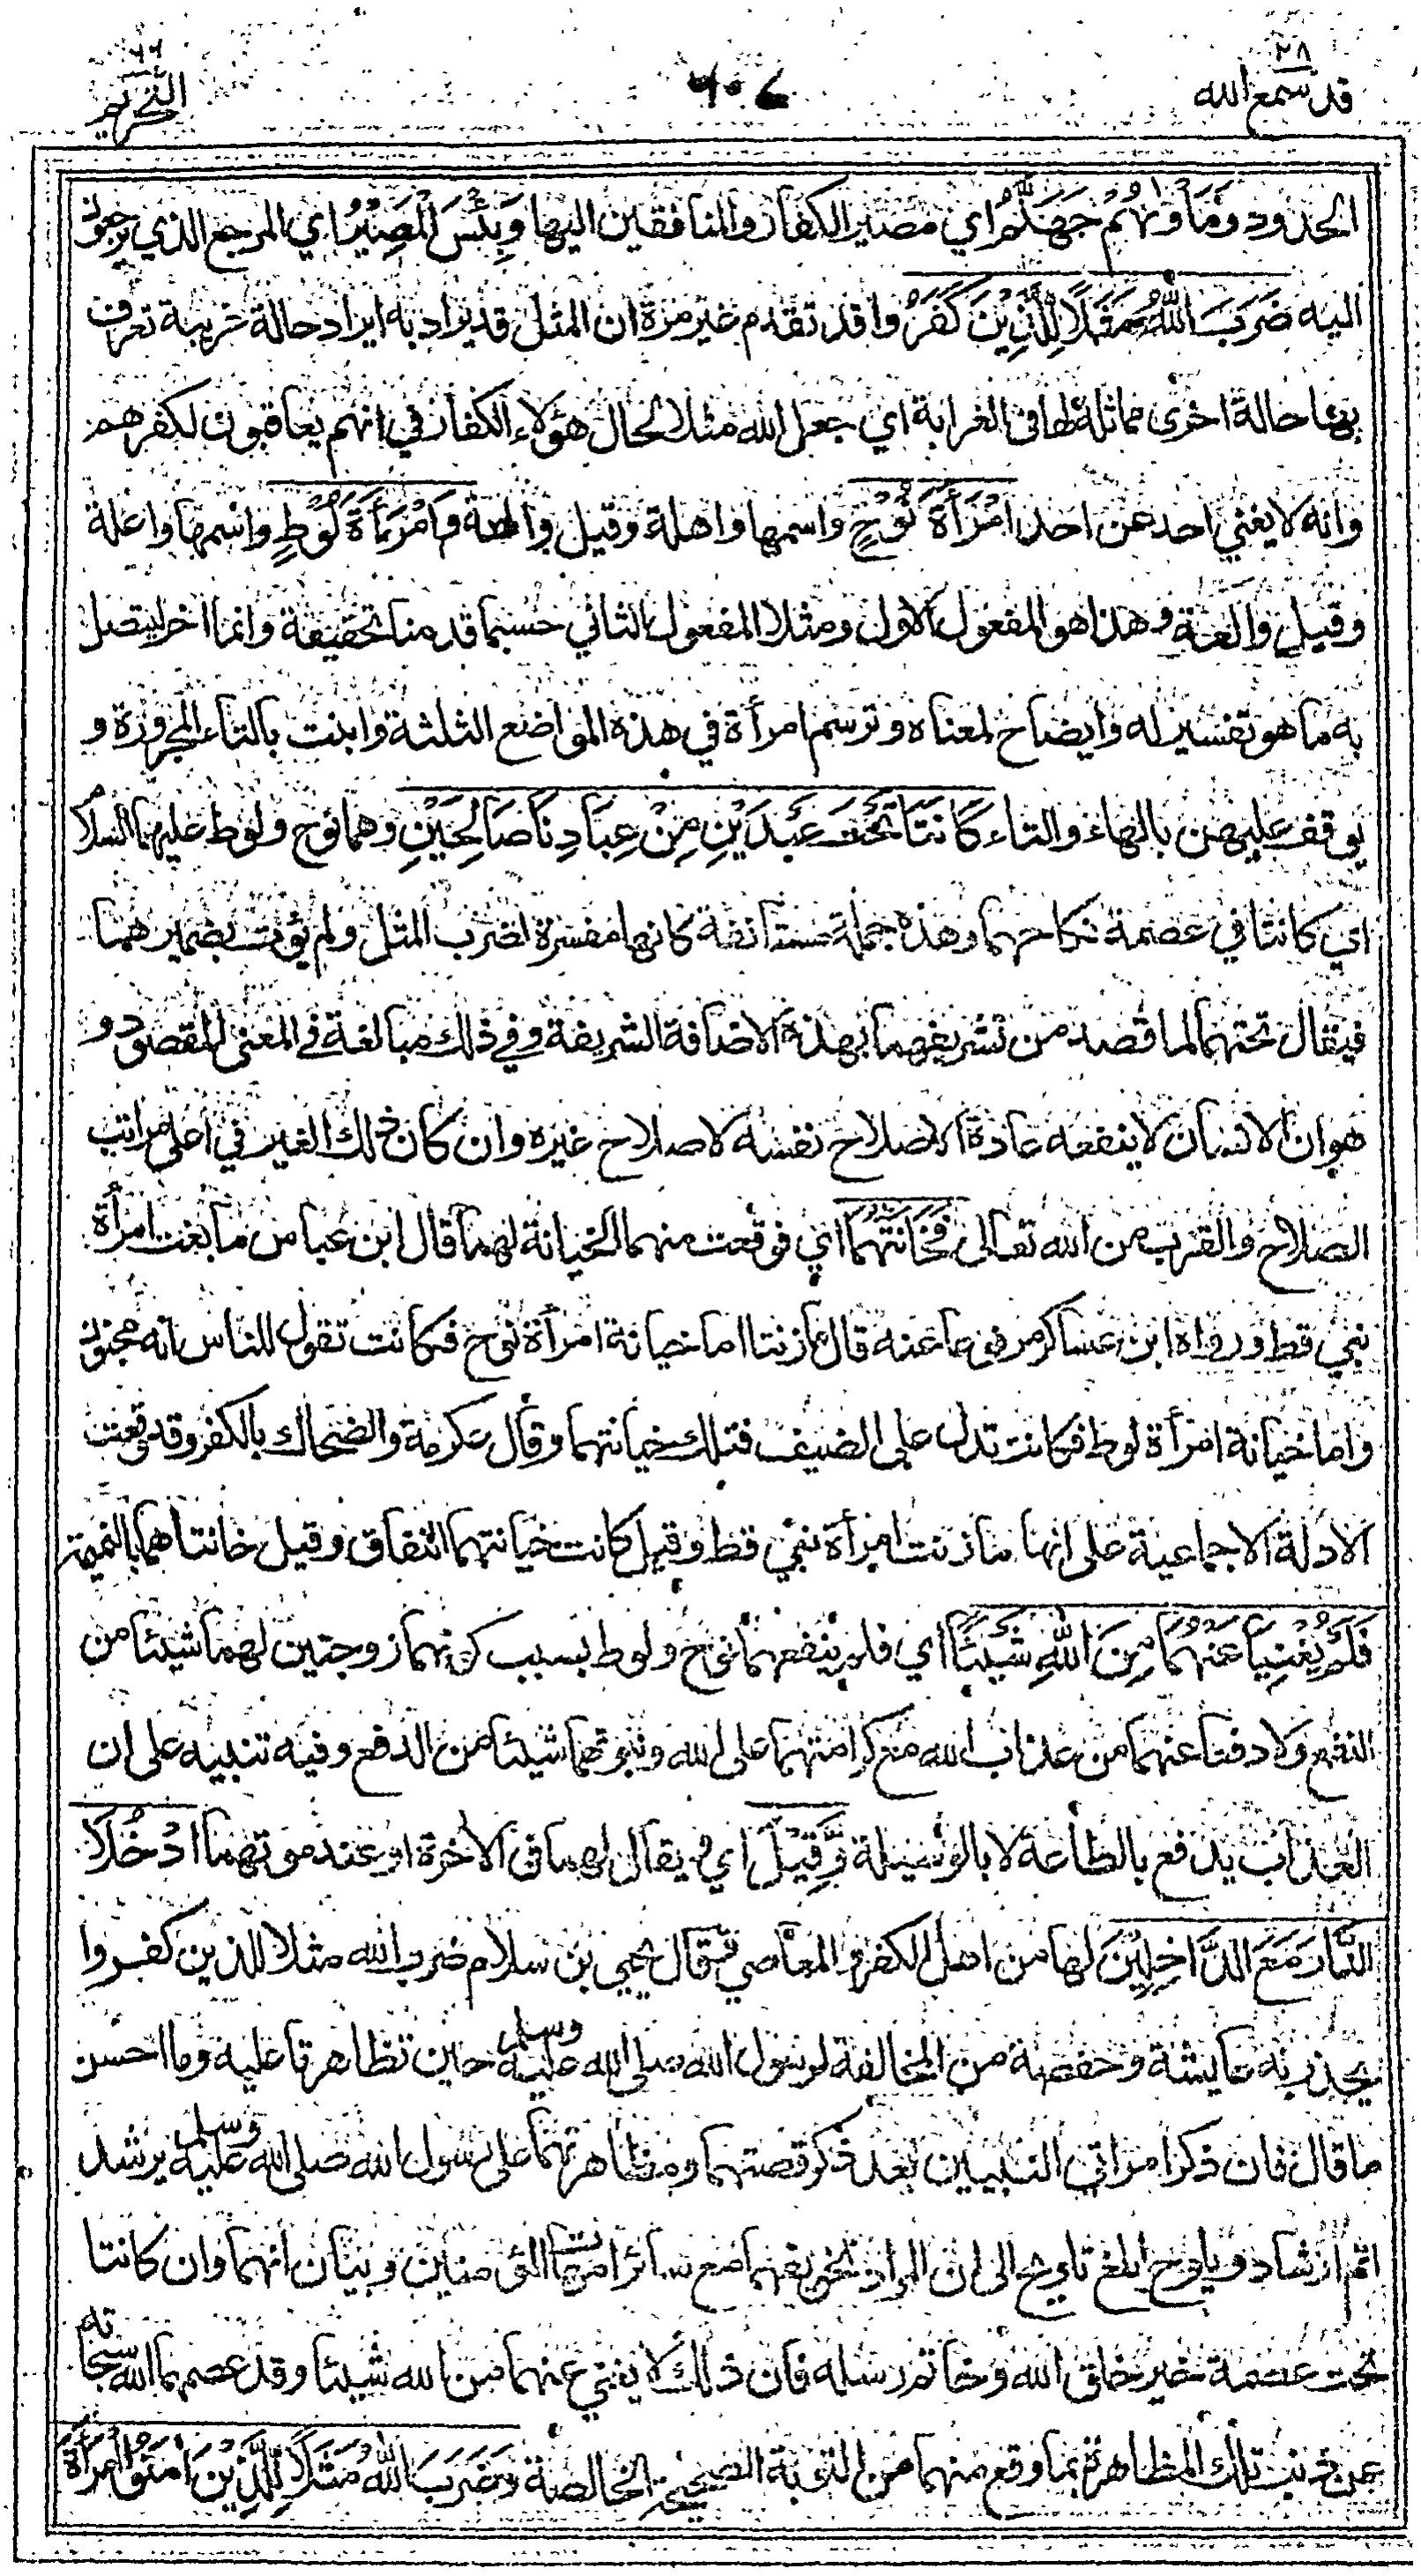 ٢٨
قد سمع الله
٦٠٤
٦٦
التحريم
الحدود ومَأْوَاهُمْ جَهَنَّمُ اي مصير الكفار والمنافقين اليها وَبِئْسَ الْمَصِيْرُ اي المرجع الذي يرجعون
اليه ضَرَبَ اللهُ مَثَلًا لِلَّذِيْنَ كَفَرُوا قد تقدم غير مرة ان المثل قد يراد به ايراد حالة غريبة تعرف
بها حالة اخرى مماثلة لها في الغرابة اي جعل الله مثلا لحال هؤلاء الكفار في انهم يعاقبون لكفرهم
وانه لا يغني احد عن احد امْرَأَةَ نُوْحٍ واسمها واهلة وقيل والهة وَامْرَأَةَ لُوْطٍ واسمها واعلة
وقيل والعة وهذا هو المفعول الاول ومثلا المفعول الثاني حسبما قدمنا تحقيقه وانما اخر ليتصل
به ما هو تفسير له وايضاح لمعناه وترسم امرأة في هذه المواضع الثلثة وابنت بالتاء المجرورة و
يوقف عليهن بالهاء والتاء كَانَتَا تَحْتَ عَبْدَيْنِ مِنْ عِبَادِنَا صَالِحَيْنِ وهما نوح ولوط عليهما السلام
اي كانتا في عصمة نكاحهما وهذه جملة مستأنفة كانها مفسرة لضرب المثل ولم يؤت بضميرهما
فيقال تحتهما لما قصد من تشريفهما بهذه الاضافة الشريفة وفي ذلك مبالغة في المعنى المقصود و
هو ان الانسان لا ينفعه عادة الا صلاح نفسه لا صلاح غيره وان كان ذلك الغير في اعلى مراتب
الصلاح والقرب من الله تعالى فَخَانَتَاهُمَا اي فوقعت منهما الخيانة لهما قال ابن عباس ما بغت امرأة
نبي قط ورواه ابن عساكر مرفوعا عنه قال ما زنتا اما خيانة امرأة نوح فكانت تقول للناس انه مجنون
واما خيانة امرأة لوط فكانت تدل على الضيف فتلك خيانتهما وقال عكرمة والضحاك بالكفر وقد وقعت
الادلة الاجماعية على انها ما زنت امرأة نبي قط وقيل كانت خيانتهما النفاق وقيل خانتاهما بالنميمة
فَلَمْ يُغْنِيَا عَنْهُمَا مِنَ اللهِ شَيْئًا اي فلم ينفعهما نوح ولوط بسبب كونهما زوجتين لهما شيئا من
النفع ولا دفعا عنهما من عذاب الله مع كرامتهما على الله ونبوتهما شيئا من الدفع وفيه تنبيه على ان
العذاب يدفع بالطاعة لا بالوسيلة وَقِيْلَ اي ويقال لهما في الاخرة او عند موتهما ادْخُلَا
النَّارَ مَعَ الدَّاخِلِيْنَ لها من اهل الكفر والمعاصي قال يحيى بن سلام ضرب الله مثلا للذين كفروا
يحذر به عايشة وحفصة من المخالفة لرسول الله صلى الله عليه وسلم حين تظاهرتا عليه وما احسن
ما قال فان ذكر امراتي النبيين بعد ذكر قصتهما ومظاهرتهما على رسول الله صلى الله عليه وسلم يرشد
اتم ارشاد ويلوح ابلغ تلويح الى ان المراد تخويفهما مع سائر امهات المؤمنين وبيان انهما وان كانتا
تحت عصمة خير خلق الله وخاتم رسله فان ذلك لا يغني عنهما من الله شيئا وقد عصمهما الله سبحانه
عن ذنب تلك المظاهرة بما وقع منهما من التوبة الصحيحة الخالصة وَضَرَبَ اللهُ مَثَلًا لِلَّذِيْنَ اٰمَنُوا امْرَأَةَ